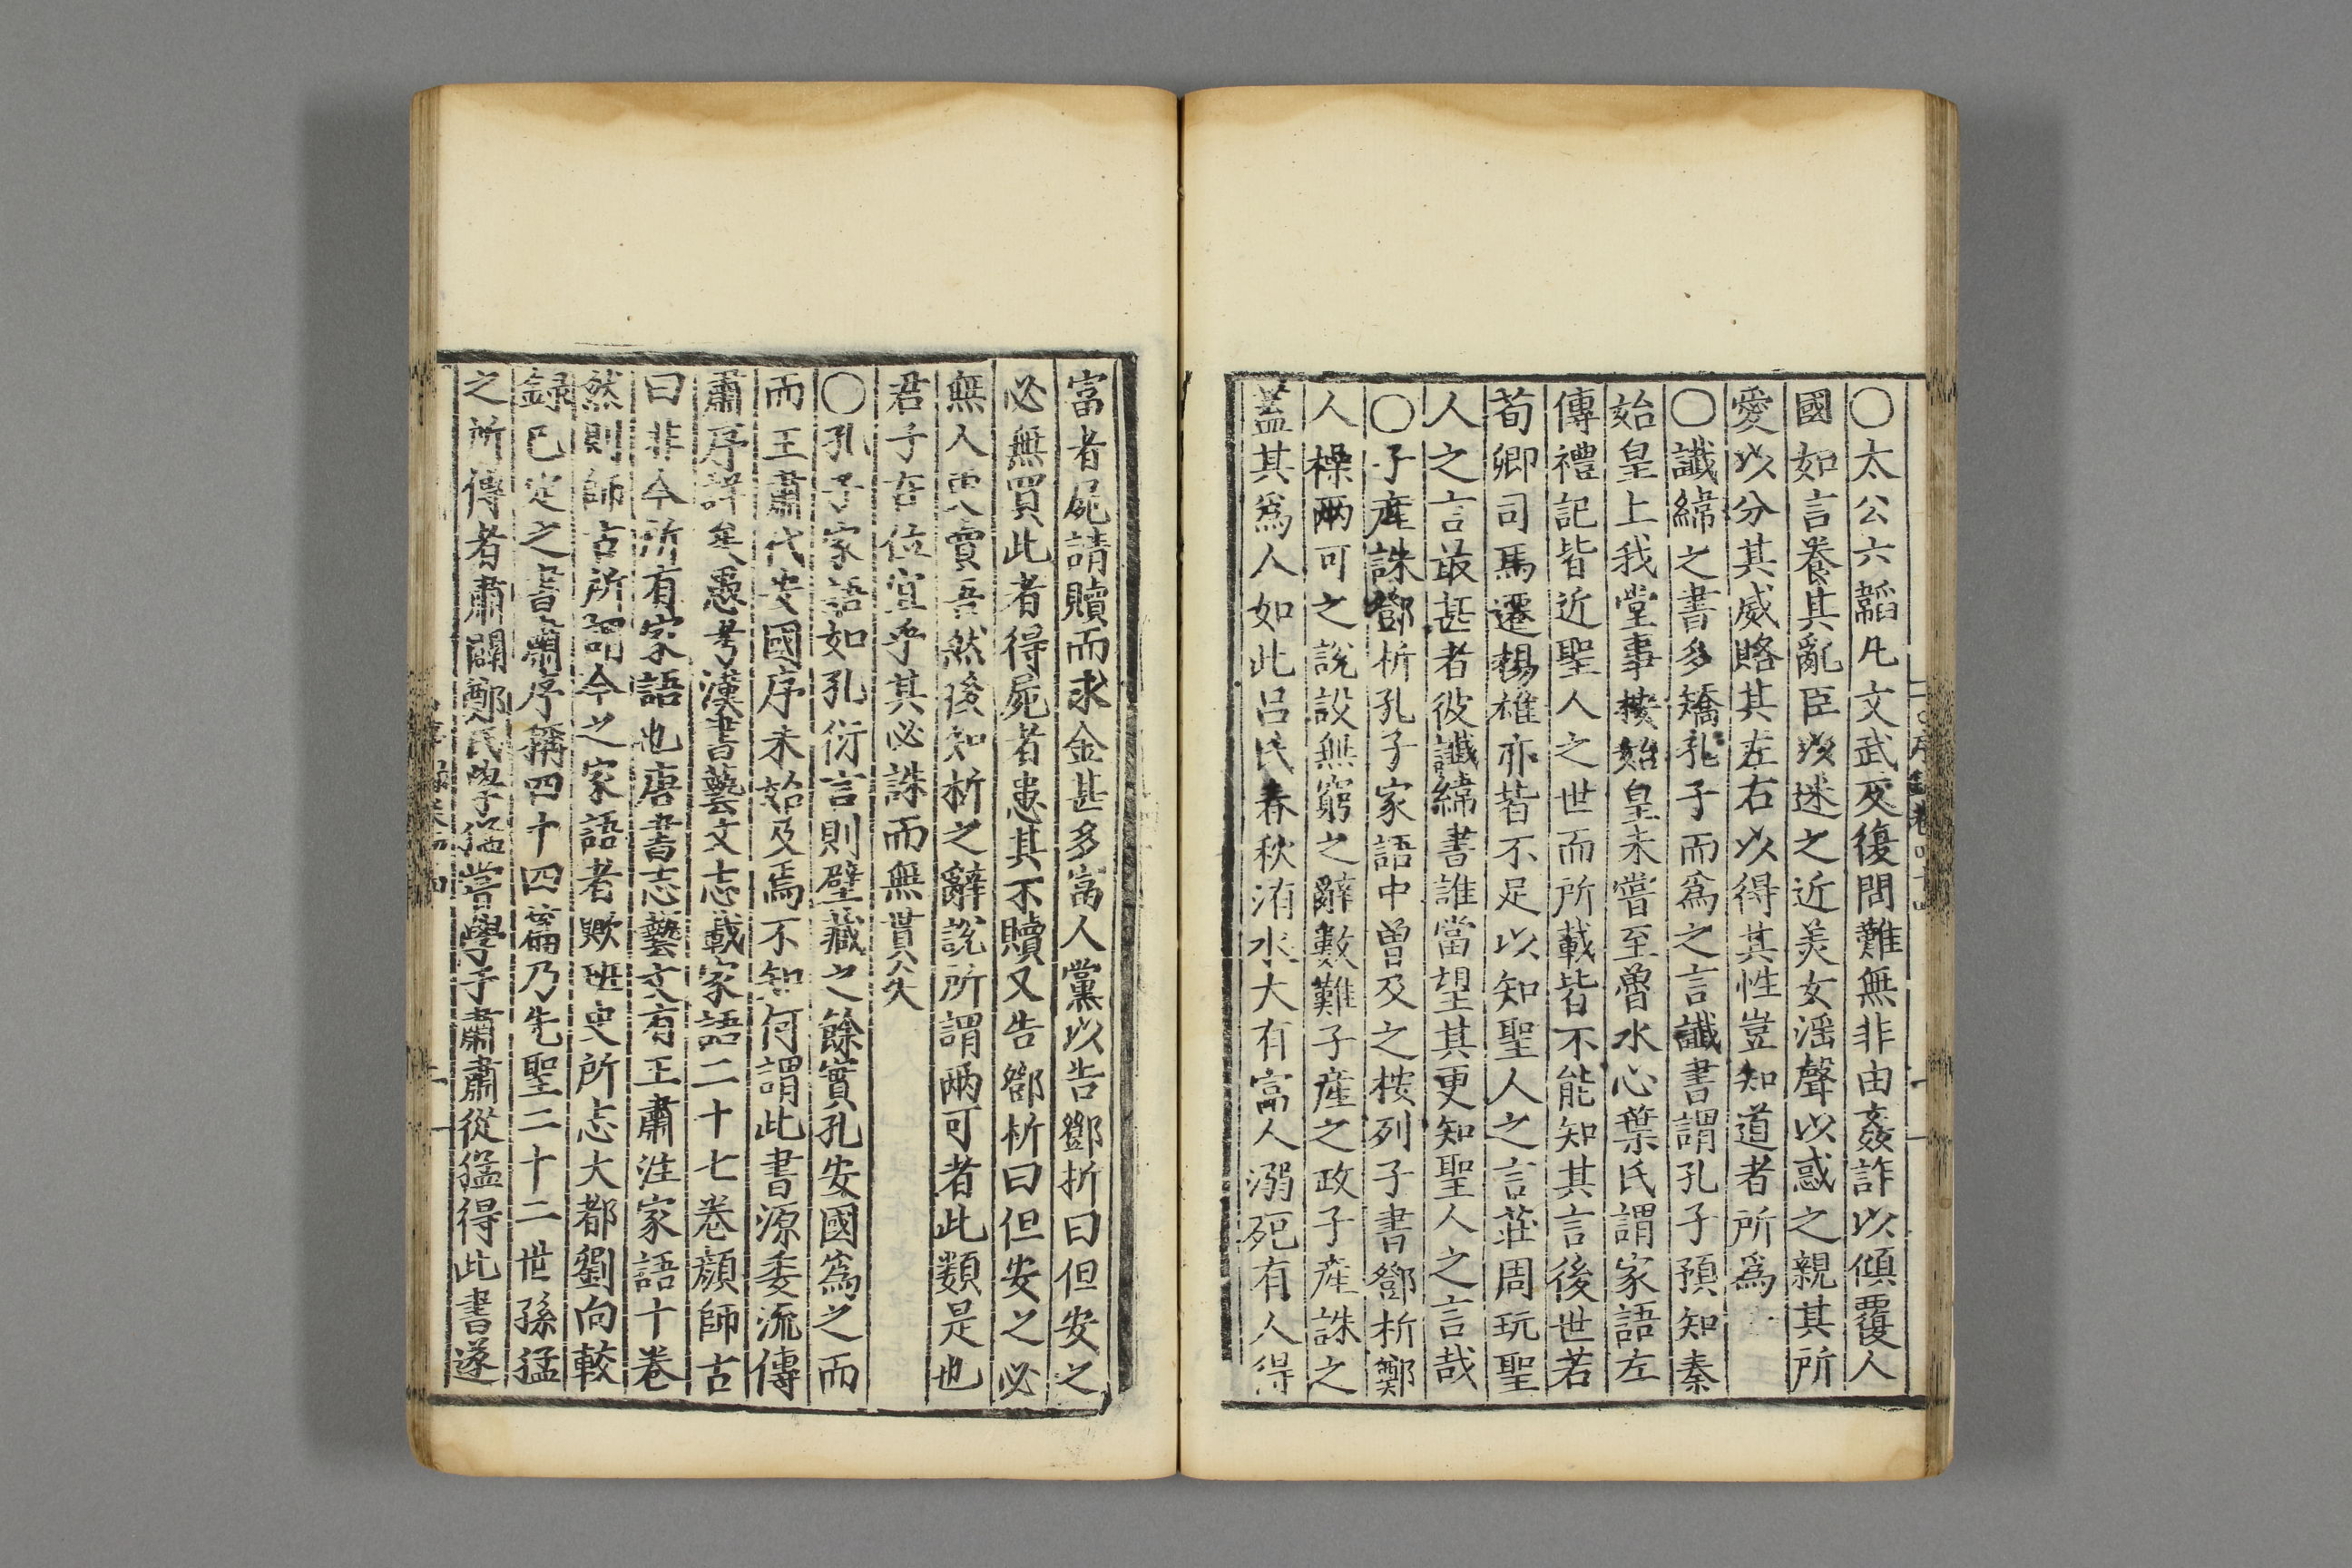 〇太公六韜凡文武反復問難無非由姦詐以傾覆人
國如言養其亂臣以迷之近美女滛聲以惑之親其所
愛以分其威賂其左右以得其性豈知道者所爲
〇讖緯之書多矯孔子而爲之言讖書謂孔子預知秦
始皇上我堂事按始皇未嘗至魯水心葉氏謂家語左
傳禮記皆近聖人之世而所載皆不能知其言後世若
荀卿司馬遷楊雄亦皆不足以知聖人之言莊周玩聖
人之言最甚者彼讖緯書誰當望其更知聖人之言哉
〇子産誅鄧析孔子家語中曽及之按列子書鄧析鄭
人操兩可之說設無窮之辭數難子産之政子産誅之
蓋其爲人如此吕氏春秋洧水大有富人溺死有人得
富者屍請贖而求金甚多富人黨以告鄧折曰但安之
必無買此者得屍者患其不贖又告鄧析曰但安之必
無人更賣吾然後知析之辭說所謂兩可者此類是也
君子在位宜乎其必誅而無貰矣
〇孔子家語如孔衍言則壁藏之餘實孔安國爲之而
而王肅代安國序未始及焉不知何謂此書源委流傳
肅序詳矣愚考漢書藝文志載家語二十七卷顔師古
曰非今所有家語也唐書志藝文有王肅注家語十卷
然則師古所謂今之家語者歟班史所志大都劉向較
録已定之書肅序稱四十四篇乃先聖二十二世孫猛
之所傳者肅闢鄭氏學猛嘗學于肅肅從猛得此書遂